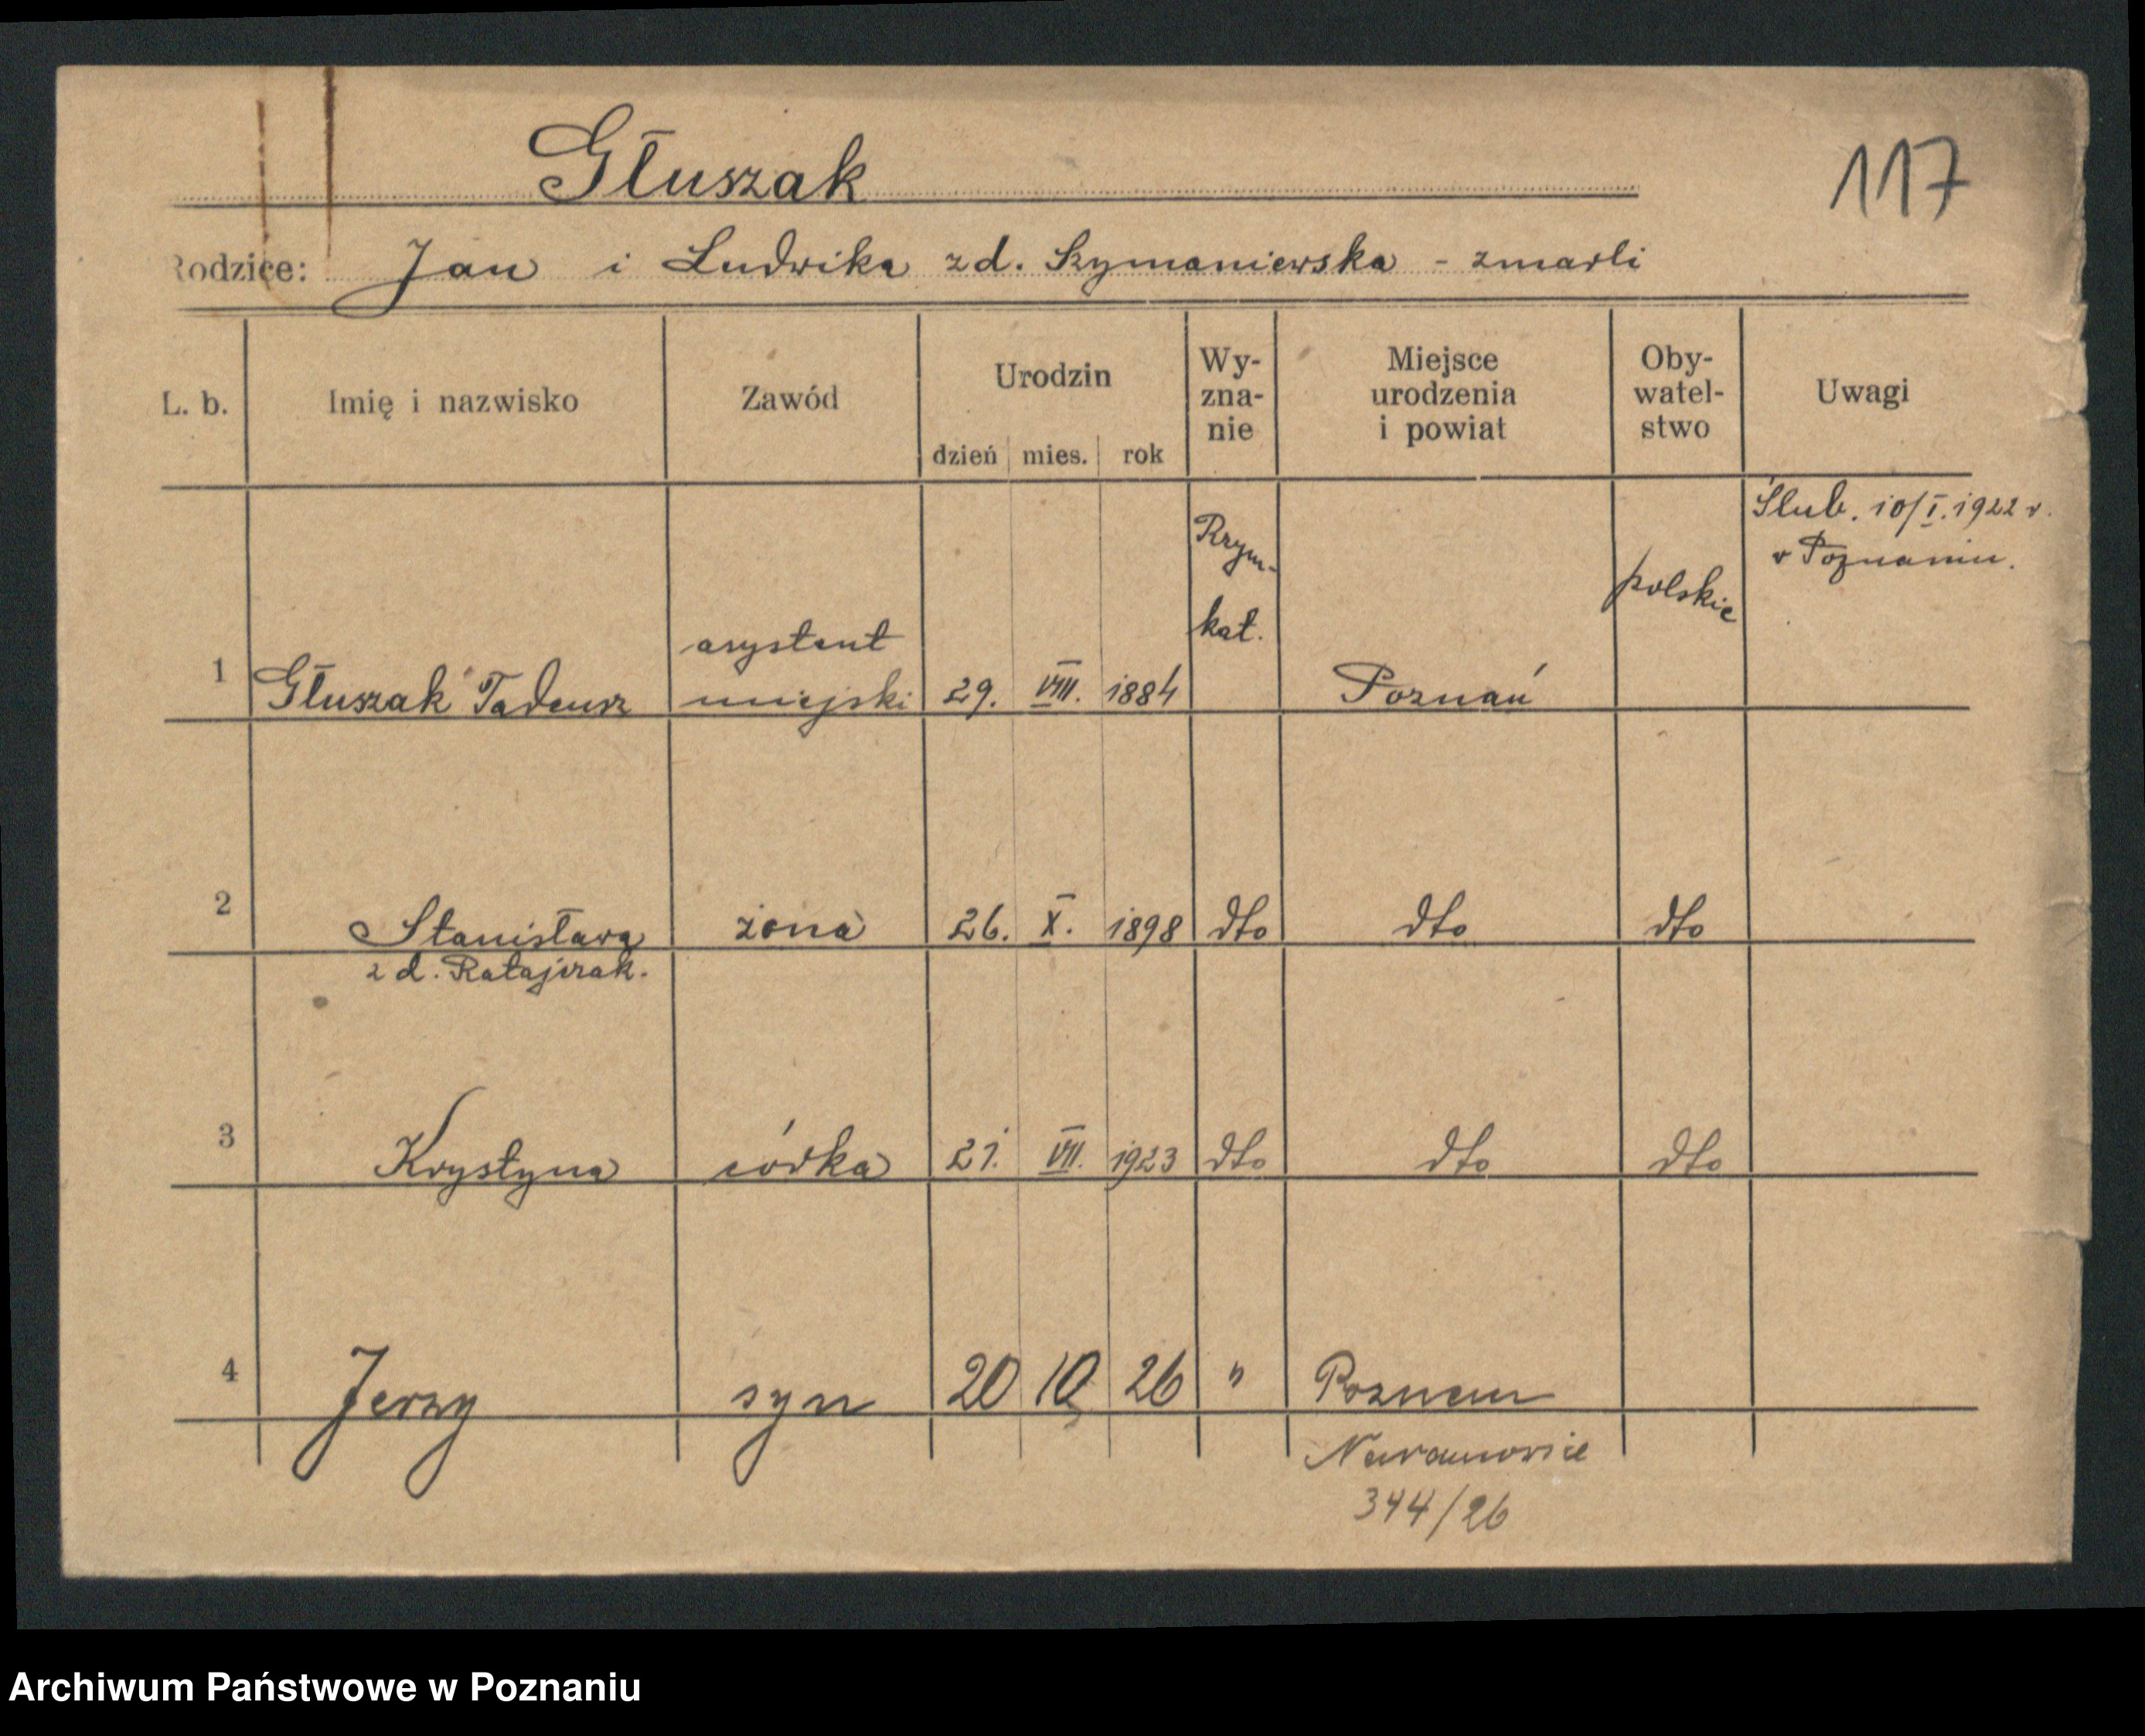 Głuszak
117
Rodzice: Jan i Ludwika zd. Szymaniewska - zmarli
L. b. Imię i nazwisko Zawód Urodzin dzień mies. rok Wy-zna-nie Miejsce urodzenia i powiat Oby-watel-stwo Uwagi
Ślub. 10/I. 1922 r.
w Poznaniu.
Rzym.-
kat.
polskie
asystent
1 Głuszak Tadeusz miejski 29. VIII. 1884 Poznań
2 Stanisława żona 26. X. 1898 dto dto dto
z d. Ratajczak.
3 Krystyna córka 21. VII. 1923 dto dto dto
4 Jerzy syn 20 10 26 " Poznan
Naramowice
344/26
Archiwum Państwowe w Poznaniu